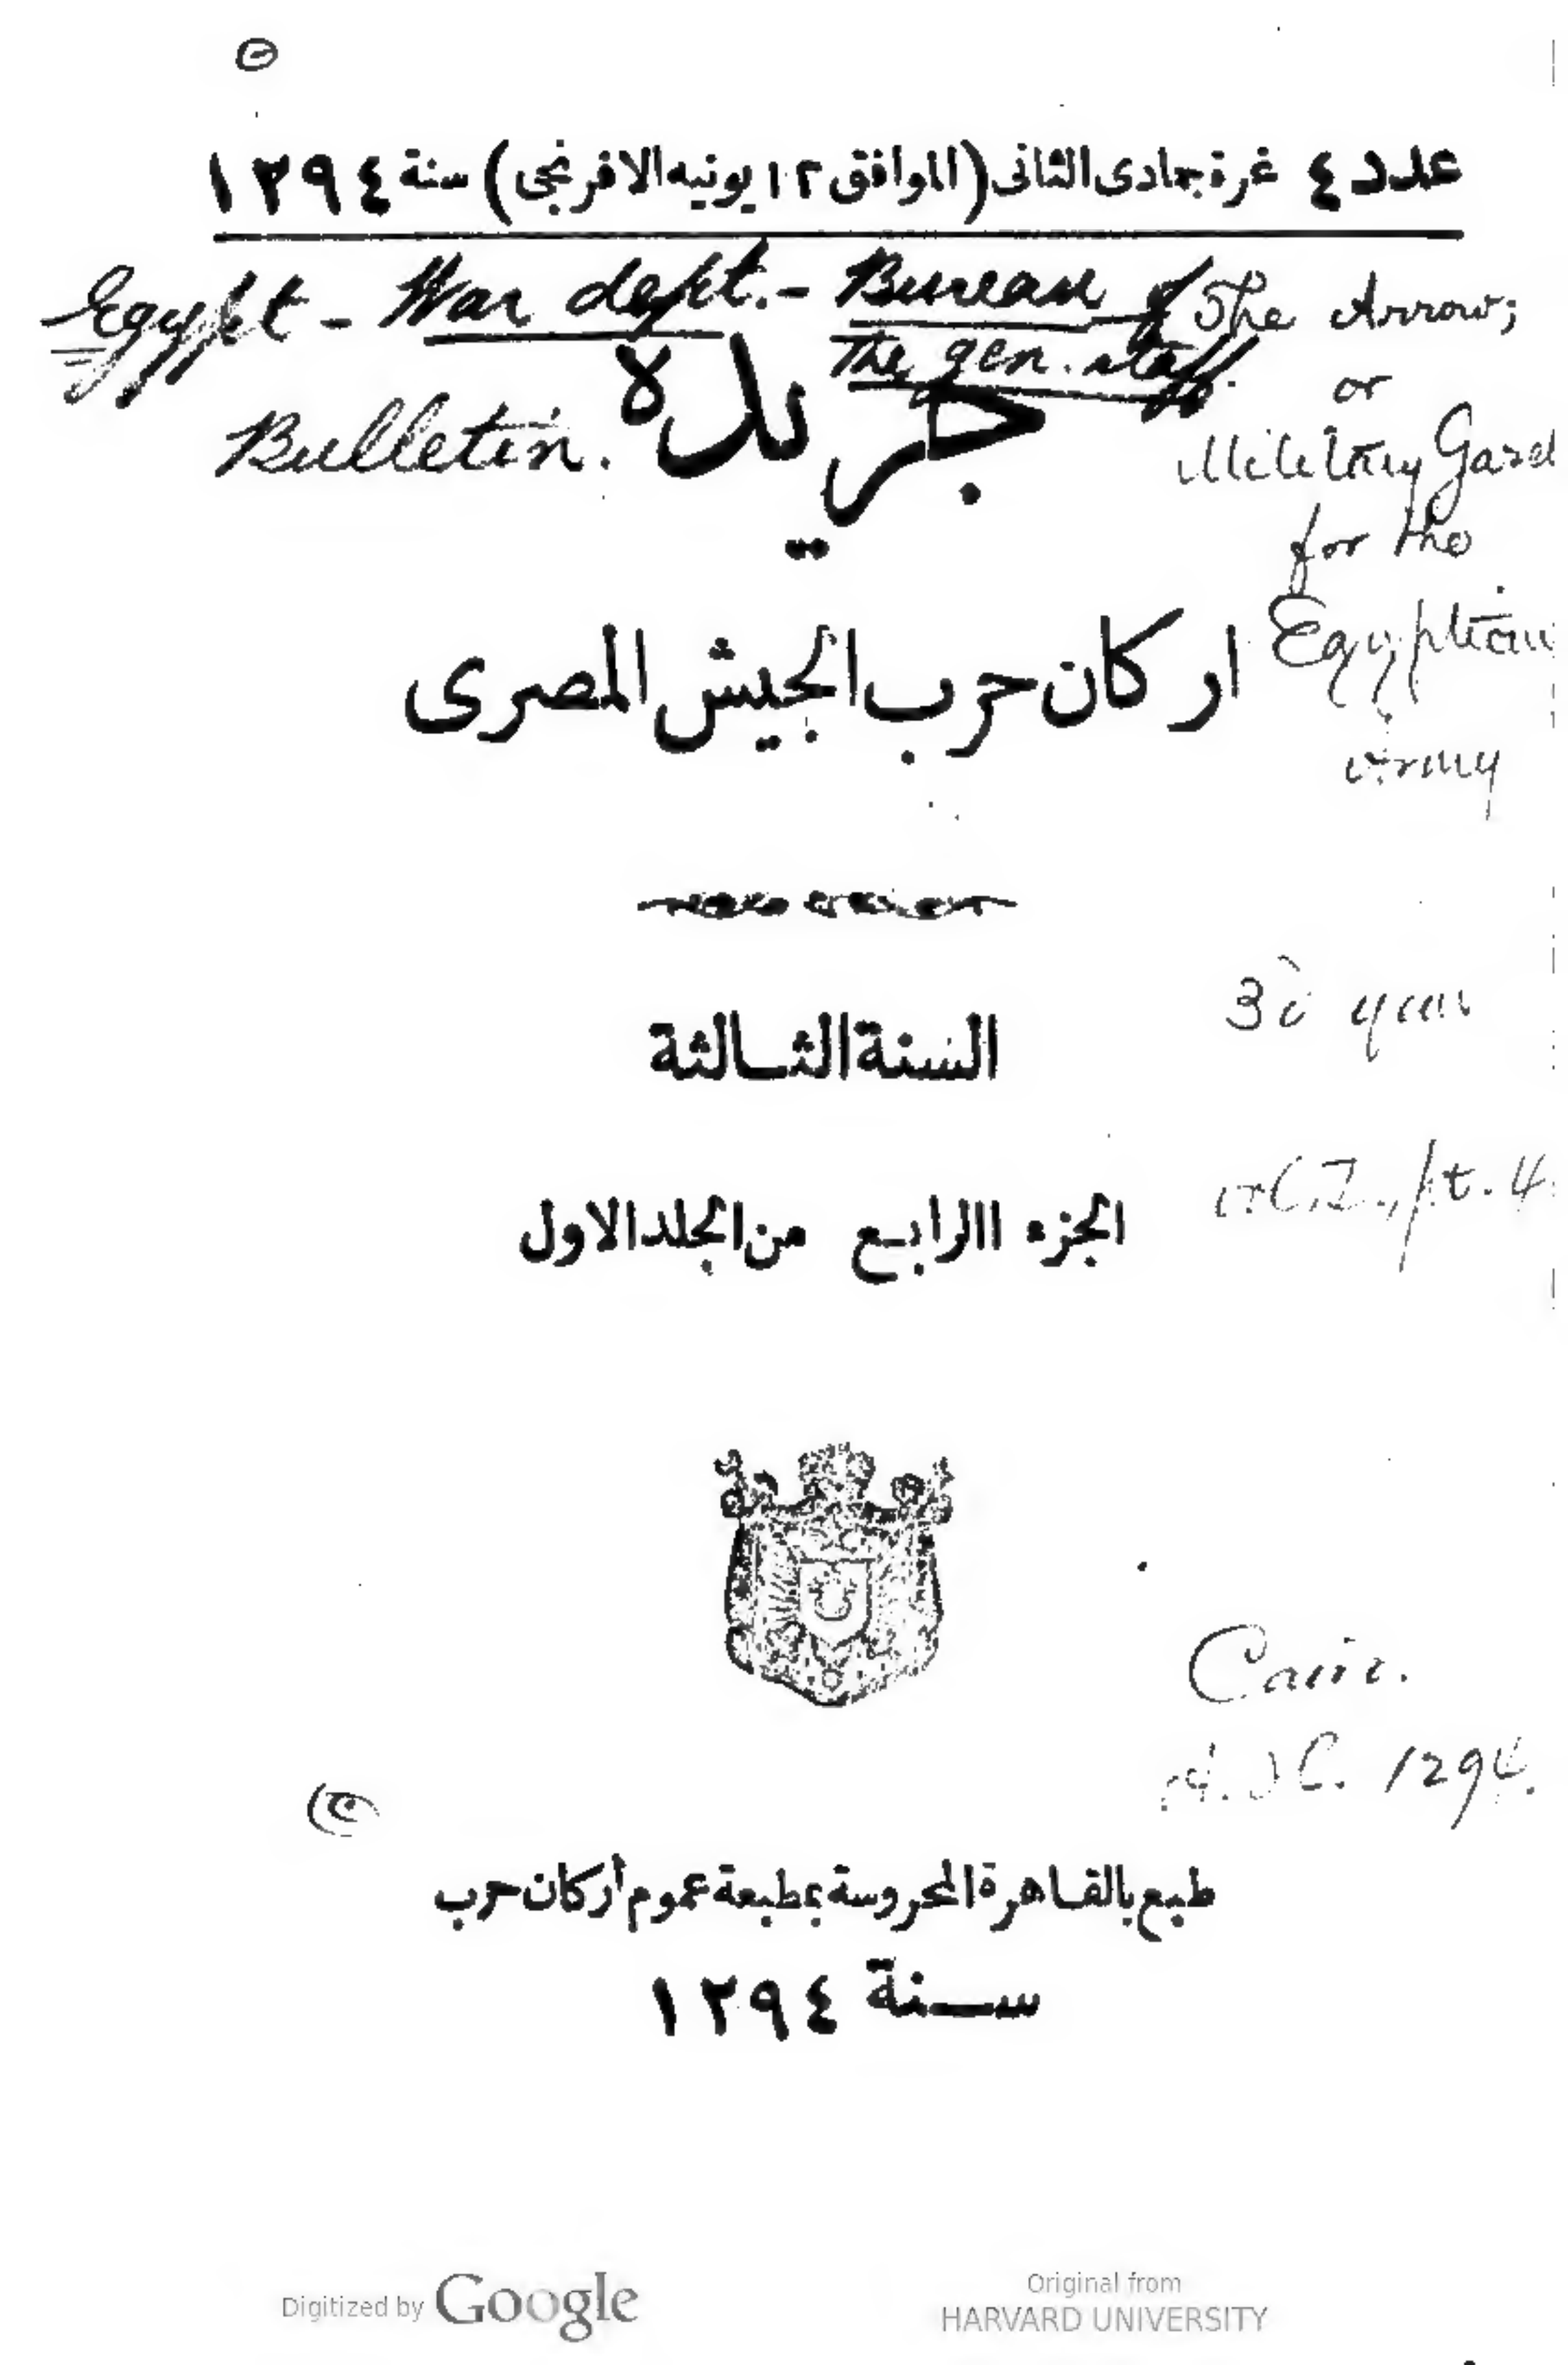 عدد ٤ غرة جمادى الثانى (الموافق ١٢ يونيه الافرنجى) سنة ١٢٩٤
Egypt - War dept. - Bureau of
the gen. staff.
Bulletin.
The Arrow;
or
Military
for the
Egyptian
Army
جريدة
اركان حرب الجيش المصرى
السنة الثالثة
3d year
الجزء االرابع من المجلد الاول
vol. I., pt. 4
Cairo.
A.H. 1294.
طبع بالقاهرة المحروسة بمطبعة عموم أركان حرب
سنة ١٢٩٤
Digitized by Google
Original from
HARVARD UNIVERSITY